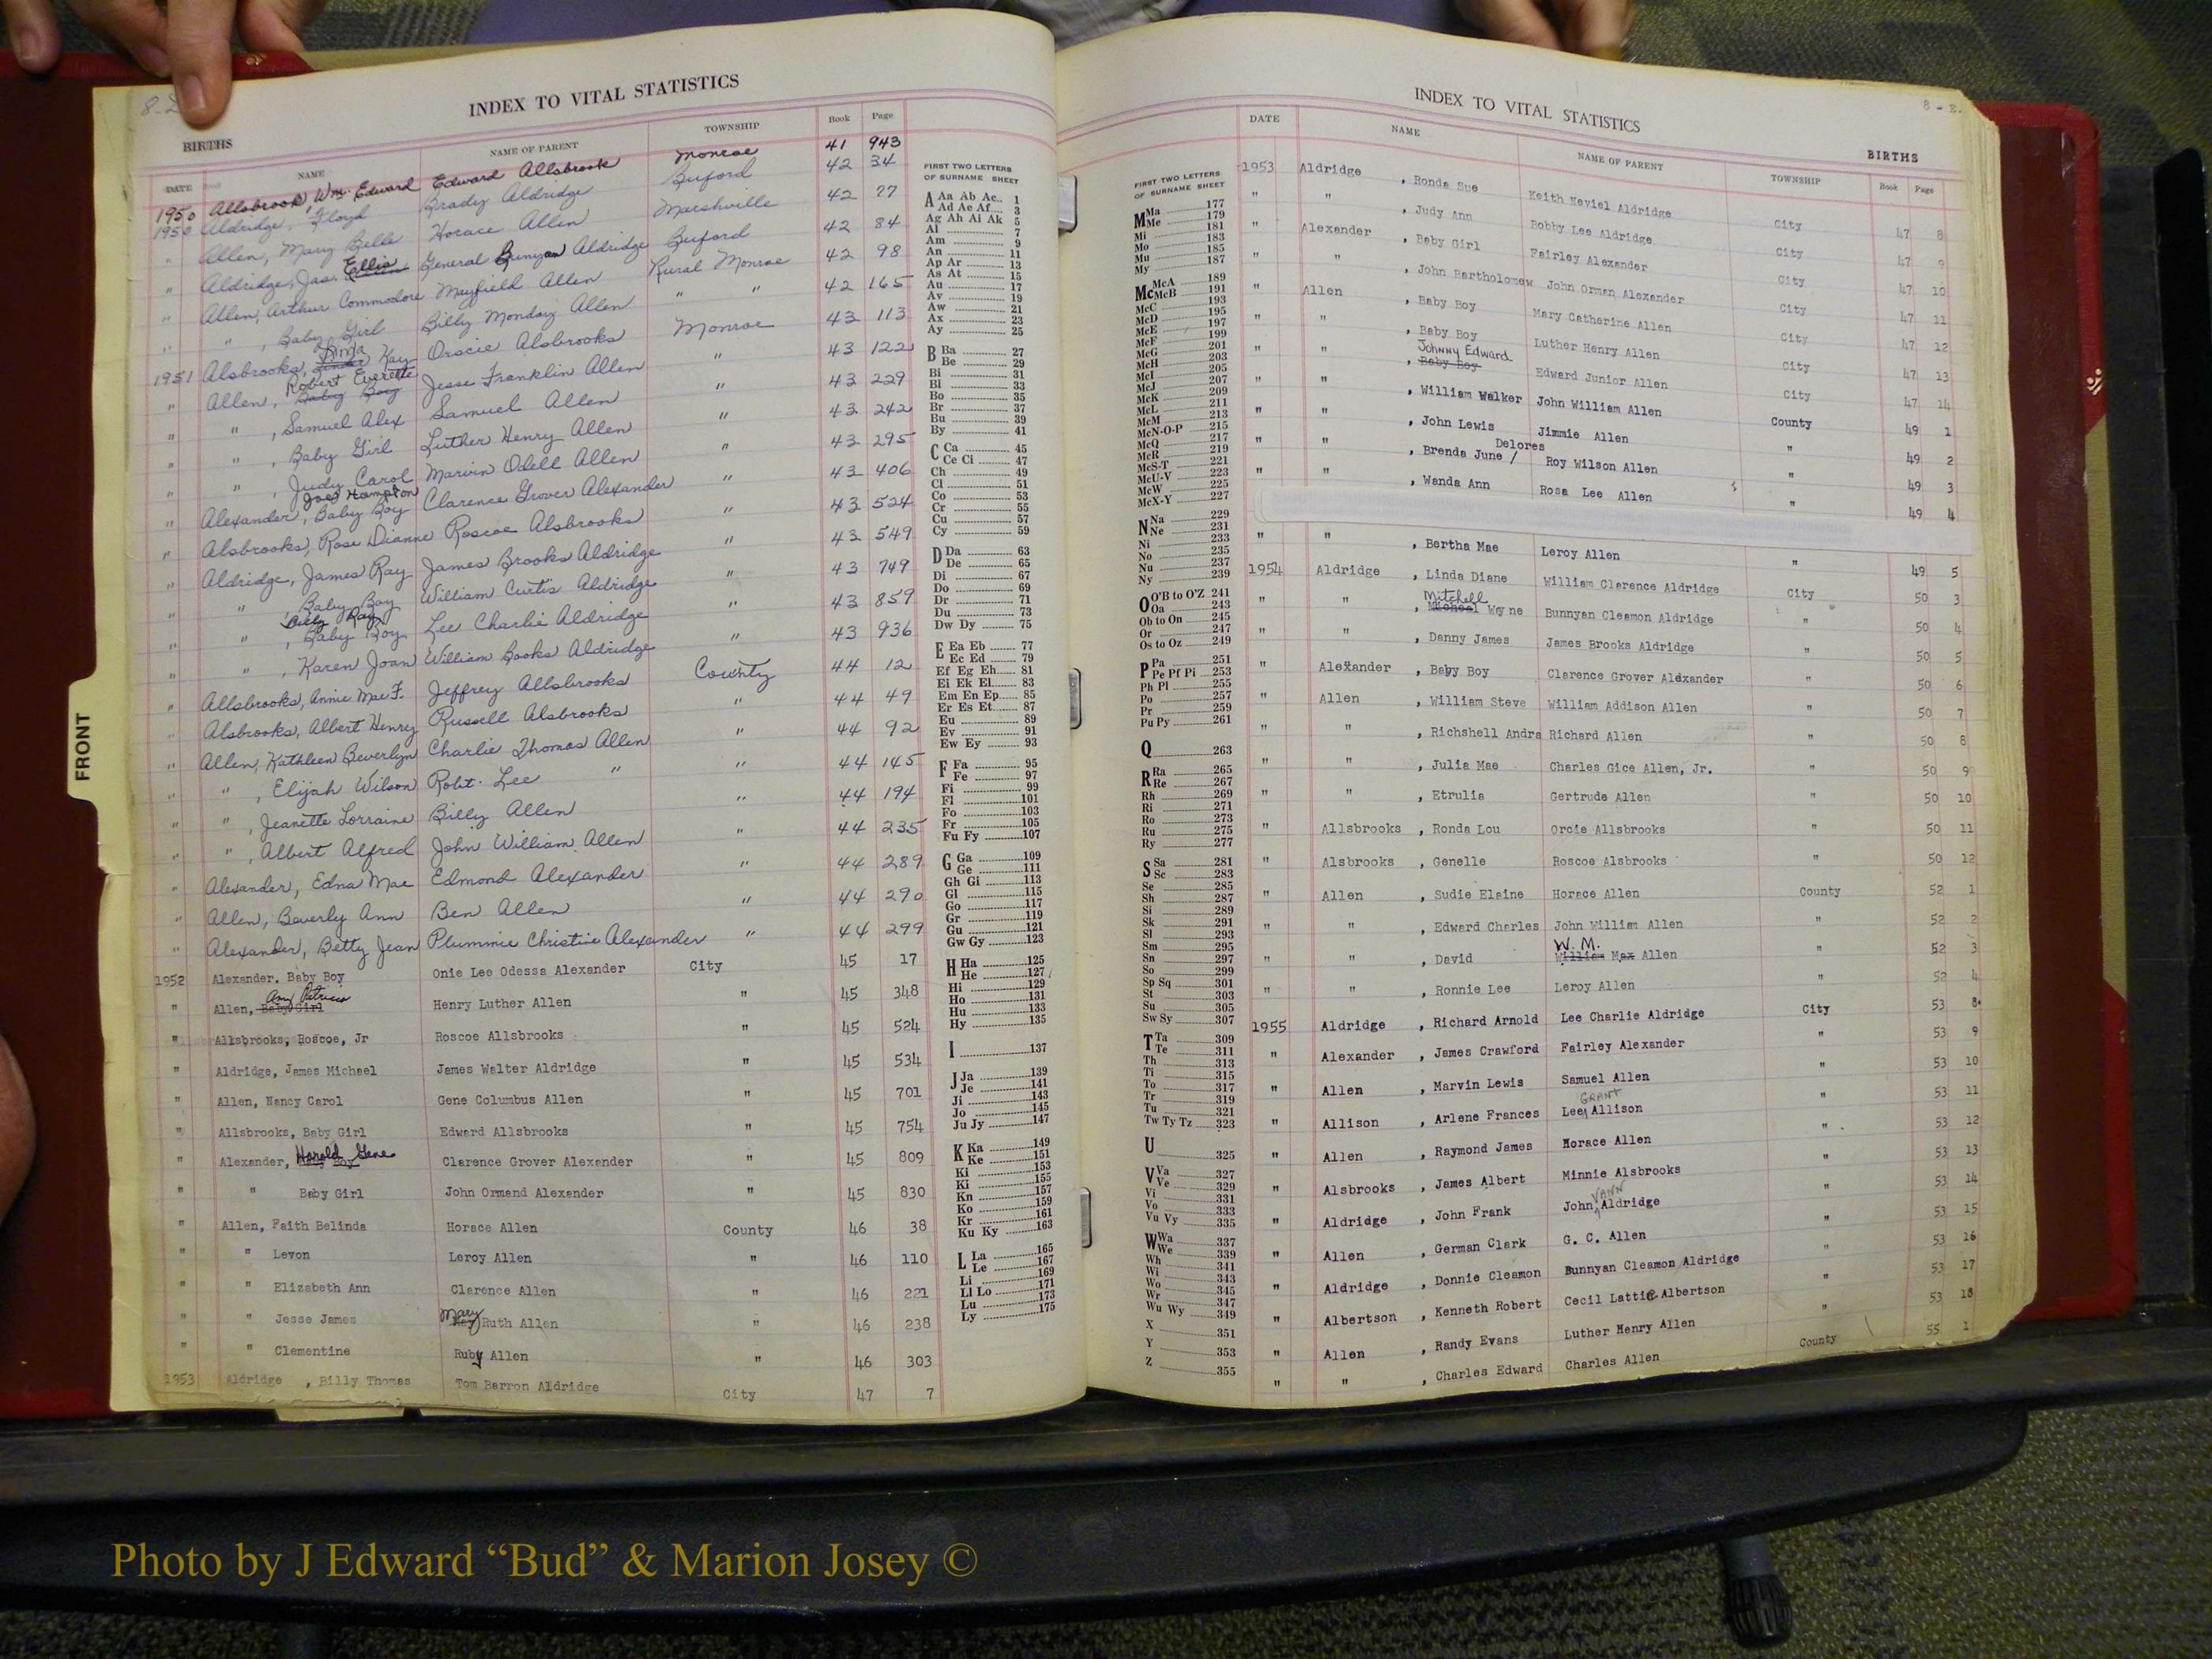 INDEX TO VITAL STATISTICS
BIRTHS
DATE NAME NAME OF PARENT TOWNSHIP Book Page
1950 Allsbrook, Wm. Edward Edward Allsbrook Monroe 41 943
1950 Aldridge, Floyd Brady Aldridge Buford 42 34
" Allen, Mary Belle Horace Allen Marshville 42 77
" Aldridge, Jas. Ellis General Bunyan Aldridge Buford 42 84
" Allen, Arthur Commodore Mayfield Allen Rural Monroe 42 98
" " , Baby Girl Billy Monday Allen " " 42 165
1951 Alsbrooks, Kay Orscie Alsbrooks Monroe 43 113
" Allen, Robert Everette Baby Boy Jesse Franklin Allen " 43 122
" " , Samuel Alex Samuel Allen " 43 229
" " , Baby Girl Luther Henry Allen " 43 242
" " , Judy Carol Marvin Odell Allen " 43 295
" Alexander, Baby Boy Joe Hampton Clarence Grover Alexander " 43 406
" Alsbrooks, Rose Dianne Roscoe Alsbrooks " 43 524
" Aldridge, James Ray James Brooks Aldridge " 43 549
" " , Baby Boy William Curtis Aldridge " 43 749
" " , Billy Ray Baby Boy Lee Charlie Aldridge " 43 859
" " , Karen Joan William Books Aldridge " 43 936
" Allsbrooks, Annie Mae F. Jeffrey Allsbrooks County 44 12
" Alsbrooks, Albert Henry Russell Alsbrooks " 44 49
" Allen, Kathleen Beverlyn Charlie Thomas Allen " 44 92
" " , Elijah Wilson Robt. Lee " " 44 145
" " , Jeanette Lorraine Billy Allen " 44 194
" " , Albert Alfred John William Allen " 44 235
" Alexander, Edna Mae Edmond Alexander " 44 289
" Allen, Beverly Ann Ben Allen " 44 290
" Alexander, Betty Jean Plummie Christine Alexander " 44 299
1952 Alexander, Baby Boy Onie Lee Odessa Alexander City 45 17
" Allen, Baby Girl Amy Patricia Henry Luther Allen " 45 348
" Allsbrooks, Roscoe, Jr Roscoe Allsbrooks " 45 524
" Aldridge, James Michael James Walter Aldridge " 45 534
" Allen, Nancy Carol Gene Columbus Allen " 45 701
" Allsbrooks, Baby Girl Edward Allsbrooks " 45 754
" Alexander, Harold Gene Clarence Grover Alexander " 45 809
" " Baby Girl John Ormand Alexander " 45 830
" Allen, Faith Belinda Horace Allen County 46 38
" " Levon Leroy Allen " 46 110
" " Elizabeth Ann Clarence Allen " 46 221
" " Jesse James Mary Ruth Allen " 46 238
" " Clementine Ruby Allen " 46 303
1953 Aldridge , Billy Thomas Tom Barron Aldridge City 47 7
FRONT
FIRST TWO LETTERS
OF SURNAME SHEET
A Aa Ab Ac.. 1
Ad Ae Af.... 3
Ag Ah Ai Ak 5
Al 7
Am 9
An 11
Ap Ar 13
As At 15
Au 17
Av 19
Aw 21
Ax 23
Ay 25
B Ba 27
Be 29
Bi 31
Bl 33
Bo 35
Br 37
Bu 39
By 41
C Ca 45
Ce Ci 47
Ch 49
Cl 51
Co 53
Cr 55
Cu 57
Cy 59
D Da 63
De 65
Di 67
Do 69
Dr 71
Du 73
Dw Dy 75
E Ea Eb 77
Ec Ed 79
Ef Eg Eh 81
Ei Ek El 83
Em En Ep 85
Er Es Et 87
Eu 89
Ev 91
Ew Ey 93
F Fa 95
Fe 97
Fi 99
Fl 101
Fo 103
Fr 105
Fu Fy 107
G Ga 109
Ge 111
Gh Gi 113
Gl 115
Go 117
Gr 119
Gu 121
Gw Gy 123
H Ha 125
He 127
Hi 129
Ho 131
Hu 133
Hy 135
I 137
J Ja 139
Je 141
Ji 143
Jo 145
Ju Jy 147
K Ka 149
Ke 151
Ki 153
Ki 155
Kn 157
Ko 159
Kr 161
Ku Ky 163
L La 165
Le 167
Li 169
Ll Lo 171
Lu 173
Ly 175
INDEX TO VITAL STATISTICS
8 - E.
BIRTHS
FIRST TWO LETTERS
OF SURNAME SHEET
M Ma 177
Me 179
Mi 181
Mo 183
Mu 185
My 187
Mc McA 189
McB 191
McC 193
McD 195
McE 197
McF 199
McG 201
McH 203
McI 205
McJ 207
McK 209
McL 211
McM 213
McN-O-P 215
McQ 217
McR 219
McS-T 221
McU-V 223
McW 225
McX-Y 227
N Na 229
Ne 231
Ni 233
No 235
Nu 237
Ny 239
O O'B to O'Z 241
Oa 243
Ob to On 245
Or 247
Os to Oz 249
P Pa 251
Pe Pf Pi 253
Ph Pl 255
Po 257
Pr 259
Pu Py 261
Q 263
R Ra 265
Re 267
Rh 269
Ri 271
Ro 273
Ru 275
Ry 277
S Sa 281
Sc 283
Se 285
Sh 287
Si 289
Sk 291
Sl 293
Sm 295
Sn 297
So 299
Sp Sq 301
St 303
Su 305
Sw Sy 307
T Ta 309
Te 311
Th 313
Ti 315
To 317
Tr 319
Tu 321
Tw Ty Tz 323
U 325
V Va 327
Ve 329
Vi 331
Vo 333
Vu Vy 335
W Wa 337
We 339
Wh 341
Wi 343
Wo 345
Wr 347
Wu Wy 349
X 351
Y 353
Z 355
DATE NAME NAME OF PARENT TOWNSHIP Book Page
1953 Aldridge , Ronda Sue Keith Neviel Aldridge City 47 8
" " , Judy Ann Bobby Lee Aldridge City 47 9
" Alexander , Baby Girl Fairley Alexander City 47 10
" " , John Bartholomew John Orman Alexander City 47 11
" Allen , Baby Boy Mary Catherine Allen City 47 12
" " , Baby Boy Luther Henry Allen City 47 13
" " , Johnny Edward Baby Boy Edward Junior Allen City 47 14
" " , William Walker John William Allen County 49 1
" " , John Lewis Jimmie Allen " 49 2
" " , Brenda June / Delores Roy Wilson Allen " 49 3
" " , Wanda Ann Rosa Lee Allen " 49 4
" " , Bertha Mae Leroy Allen " 49 5
1954 Aldridge , Linda Diane William Clarence Aldridge City 50 3
" " , Mitchell Micheal Wayne Bunnyan Cleamon Aldridge " 50 4
" " , Danny James James Brooks Aldridge " 50 5
" Alexander , Baby Boy Clarence Grover Alexander " 50 6
" Allen , William Steve William Addison Allen " 50 7
" " , Richshell Andra Richard Allen " 50 8
" " , Julia Mae Charles Gice Allen, Jr. " 50 9
" " , Etrulia Gertrude Allen " 50 10
" Allsbrooks , Ronda Lou Orcie Allsbrooks " 50 11
" Alsbrooks , Genelle Roscoe Alsbrooks " 50 12
" Allen , Sudie Elaine Horace Allen County 52 1
" " , Edward Charles John William Allen " 52 2
" " , David W. M. William Max Allen " 52 3
" " , Ronnie Lee Leroy Allen " 52 4
1955 Aldridge , Richard Arnold Lee Charlie Aldridge City 53 8
" Alexander , James Crawford Fairley Alexander " 53 9
" Allen , Marvin Lewis Samuel Allen " 53 10
" Allison , Arlene Frances Lee GRANT Allison " 53 11
" Allen , Raymond James Horace Allen " 53 12
" Alsbrooks , James Albert Minnie Alsbrooks " 53 13
" Aldridge , John Frank John VANN Aldridge " 53 14
" Allen , German Clark G. C. Allen " 53 15
" Aldridge , Donnie Cleamon Bunnyan Cleamon Aldridge " 53 16
" Albertson , Kenneth Robert Cecil Lattie Albertson " 53 17
" Allen , Randy Evans Luther Henry Allen " 53 18
" " , Charles Edward Charles Allen County 55 1
Photo by J Edward “Bud” & Marion Josey ©